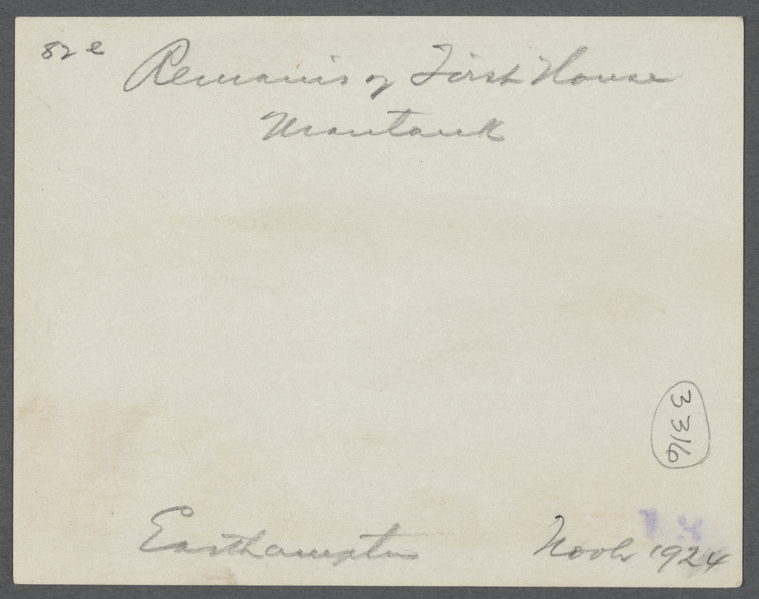 82 e
Remains of First House
Montauk
3316
Easthampton
1924